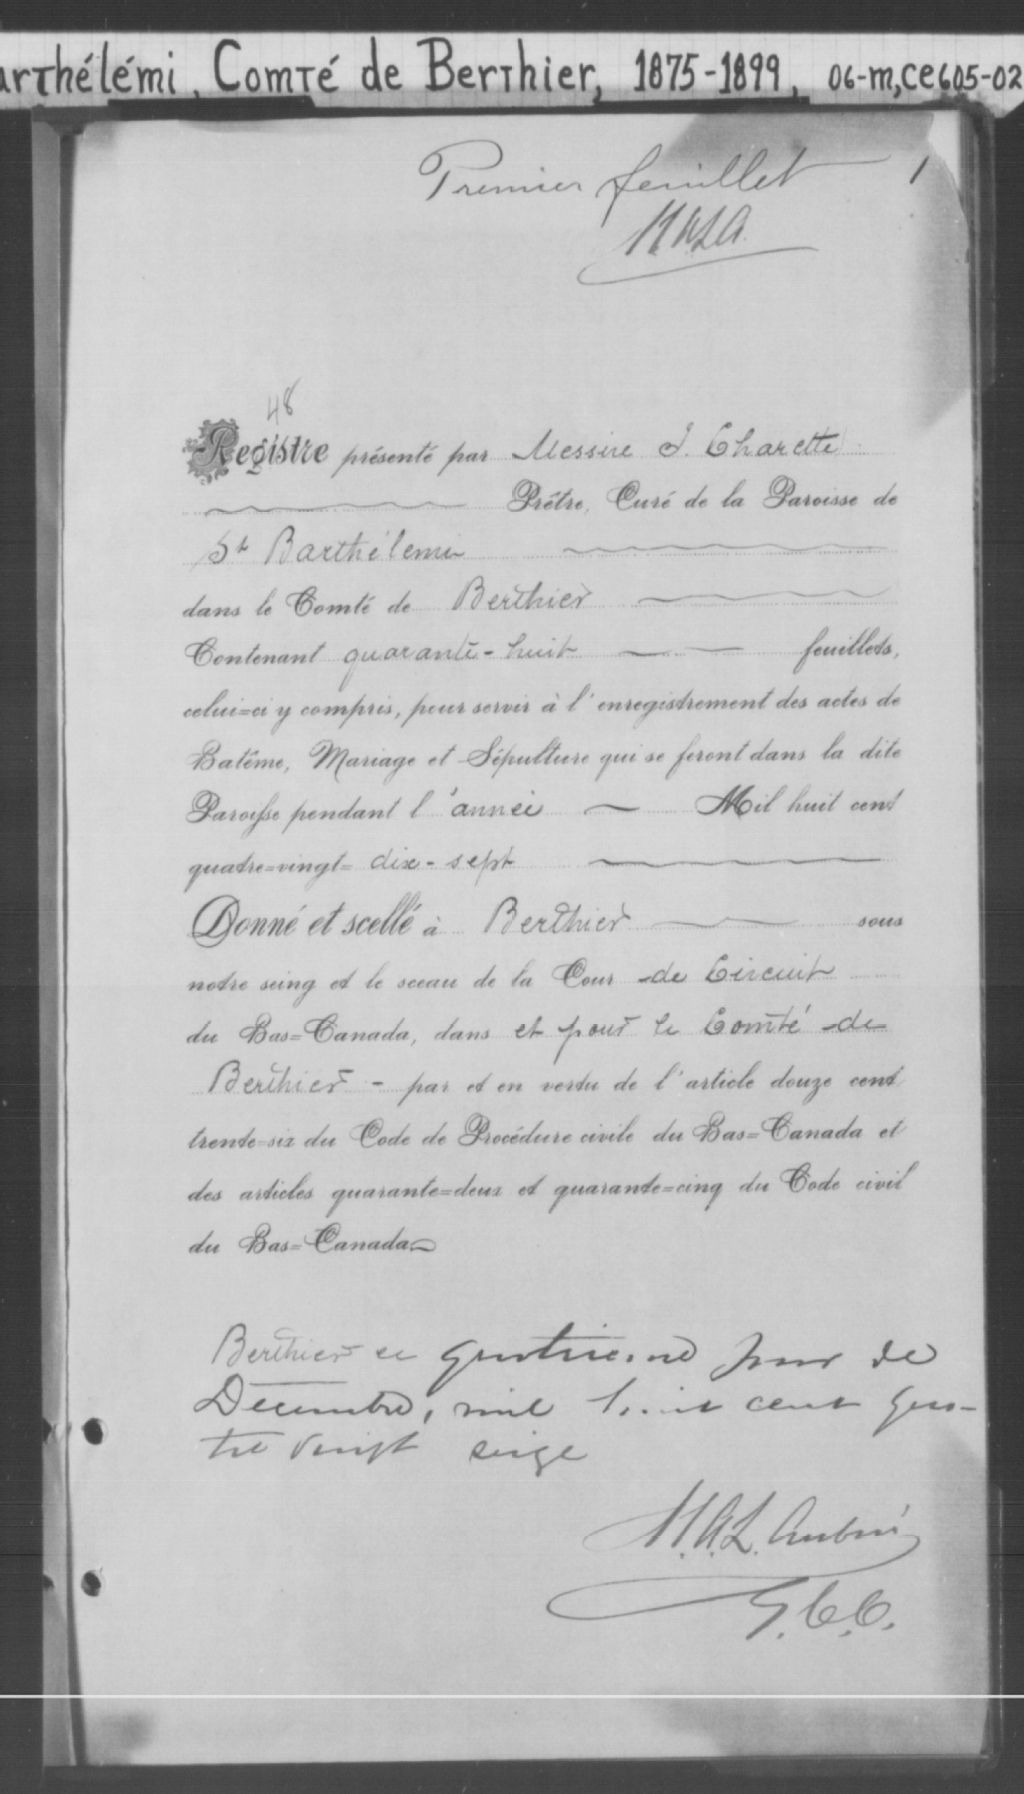 arthélémi, Comté de Berthier, 1875-1899, 06-M,CE605-02
Premier feuillet 1
48
Registre présenté par Messire J. Charette
Prêtre, Curé de la Paroisse de
St Barthélemi
dans le Comté de Berthier
Contenant quarante-huit feuillets,
celui=ci y compris, pour servir à l'enregistrement des actes de
Batême, Mariage et Sépulture qui se feront dans la dite
Paroisse pendant l'année Mil huit cent
quatre=vingt= dix-sept
Donné et scellé à Berthier sous
notre seing et le sceau de la Cour de Circuit
du Bas=Canada, dans et pour le Comté de
Berthier - par et en vertu de l'article douze cent
trente=six du Code de Procédure civile du Bas=Canada et
des articles quarante=deux et quarante=cinq du Code civil
du Bas=Canada
Berthier ce quatrième jour de
Décembre, mil huit cent qua-
tre vingt seize
A.L. Aubin
G.C.C.